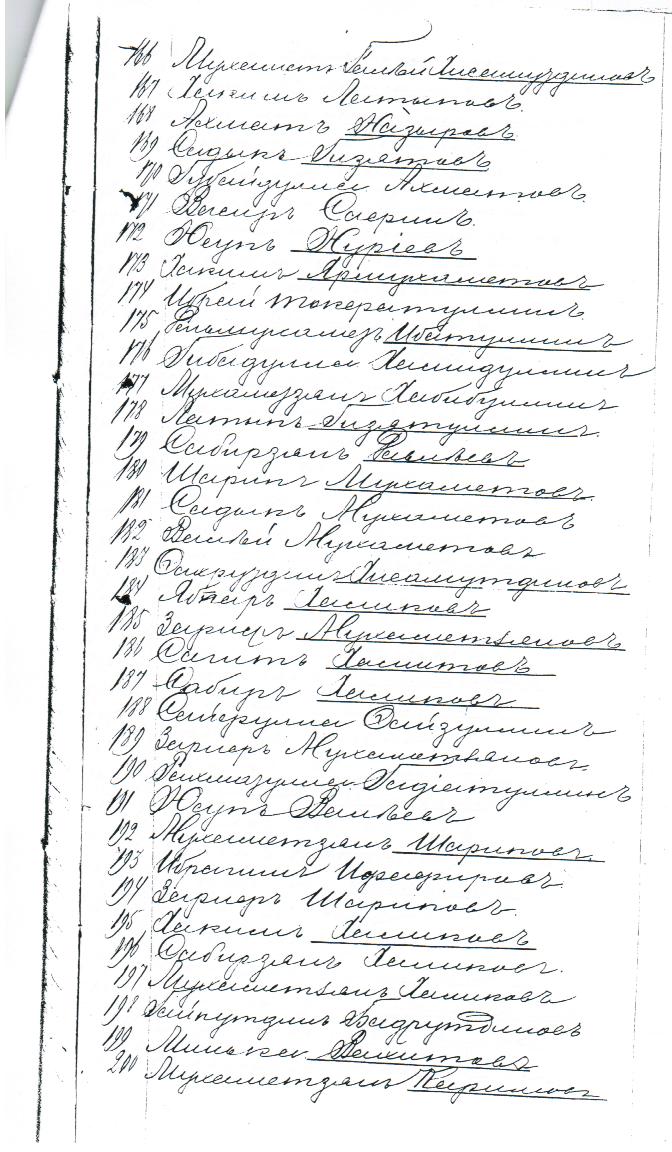 166 Мухаметъ Галѣй Хисамутдиновъ
167 Хакимъ Латыповъ
168 Ахметъ Назыровъ
169 Садыкъ Гизятовъ
170 Губайдулла Ахметовъ
171 Вагизъ
172 Юсупъ Нуріевъ
173 Хакимъ Ярмухаметовъ
174 Ибрай
175 Ибатуллинъ
176 Гибадулла Хамидуллинъ
177 Мухамедзянъ Хабибуллинъ
178 Латыпъ Гизятуллинъ
179 Сабирзянъ Валѣевъ
180 Шарипъ Мухаметовъ
181 Садыкъ Мухаметовъ
182 Валѣй Мухаметовъ
183 Фахрутдинъ Хисамутдиновъ
184 Халиковъ
185 Загиръ Мухаметзяновъ
186 Сагитъ Хамитовъ
187 Сабиръ Халиковъ
188 Сайфулла Файзуллинъ
189 Загиръ Мухаметзяновъ
190 Гадіатуллинъ
191 Юсупъ Валѣевъ
192 Мухаметзянъ Шариповъ
193 Ибрагимъ
194 Загиръ Шариповъ
195 Хакимъ Халиковъ
196 Сабирзянъ Халиковъ
197 Мухаметзянъ Халиковъ
198 Бадрутдиновъ
199 Вахитовъ
200 Мухаметзянъ Каримовъ